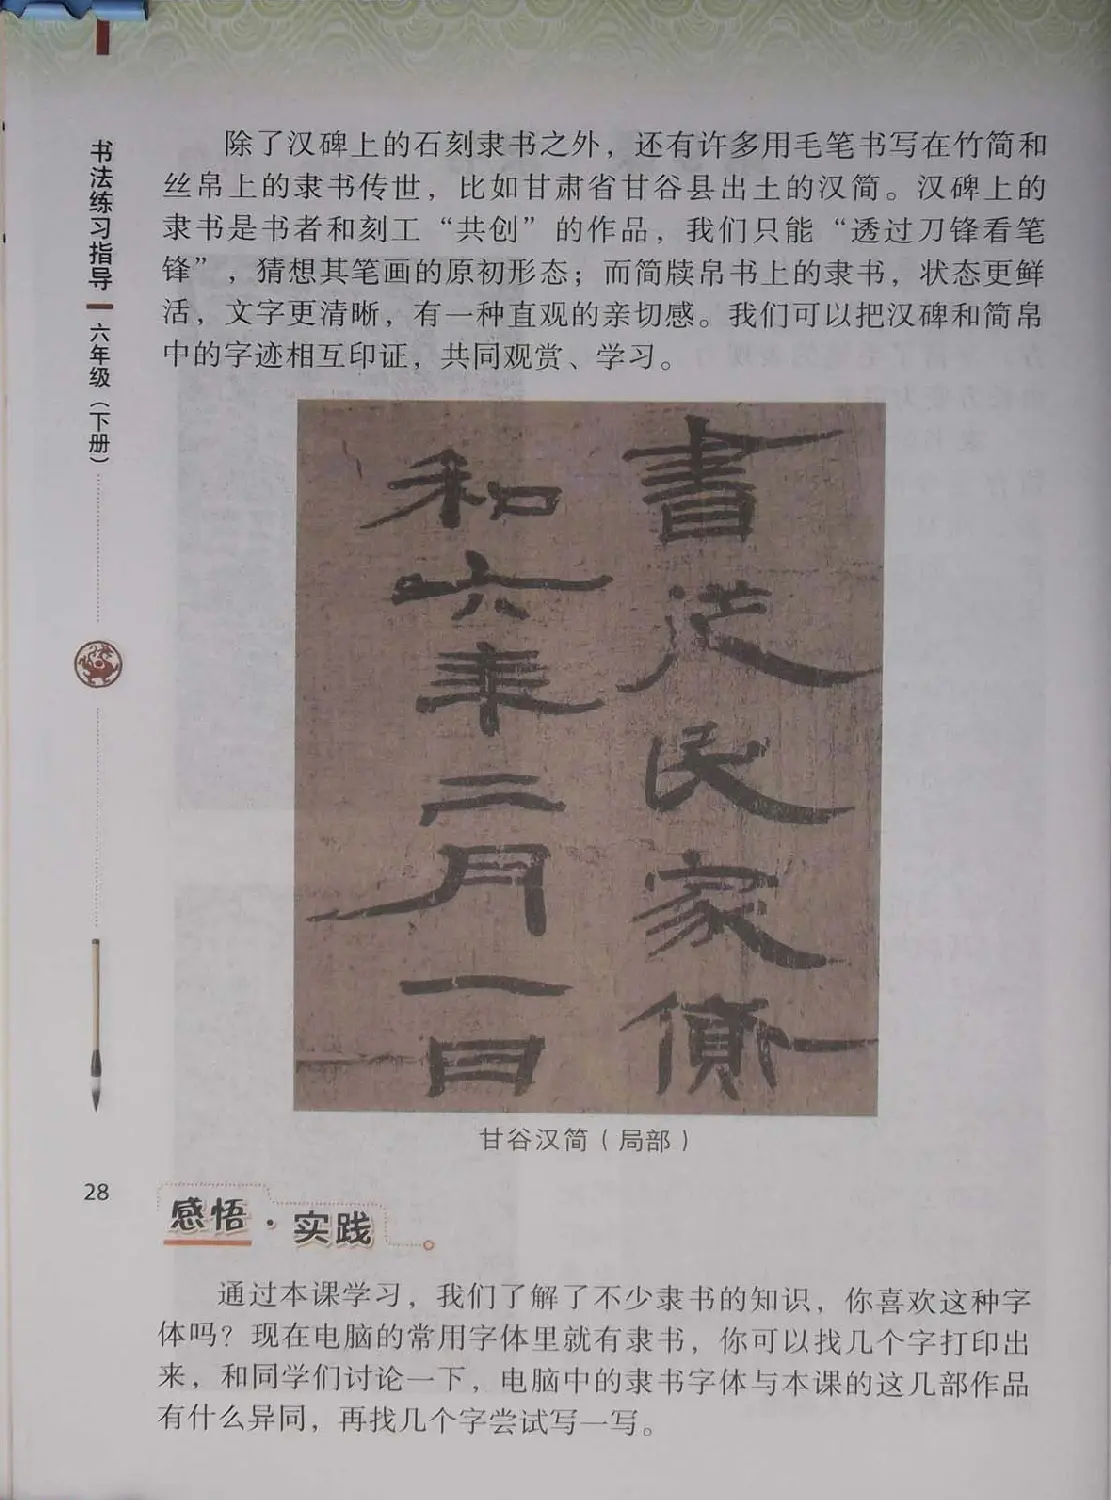 书法练习指导
六年级（下册）
除了汉碑上的石刻隶书之外，还有许多用毛笔书写在竹简和
丝帛上的隶书传世，比如甘肃省甘谷县出土的汉简。汉碑上的
隶书是书者和刻工“共创”的作品，我们只能“透过刀锋看笔
锋”，猜想其笔画的原初形态；而简牍帛书上的隶书，状态更鲜
活，文字更清晰，有一种直观的亲切感。我们可以把汉碑和简帛
中的字迹相互印证，共同观赏、学习。
書从民家
和六年二月一日
甘谷汉简（局部）
28
感悟·实践
通过本课学习，我们了解了不少隶书的知识，你喜欢这种字
体吗？现在电脑的常用字体里就有隶书，你可以找几个字打印出
来，和同学们讨论一下，电脑中的隶书字体与本课的这几部作品
有什么异同，再找几个字尝试写一写。